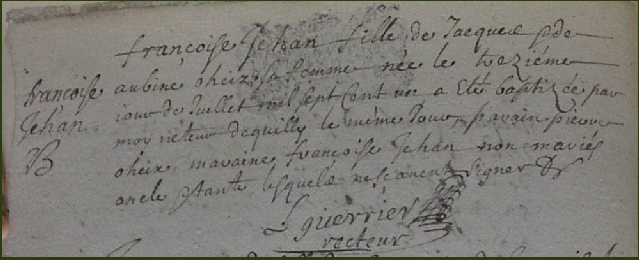 françoise Jehan
B
françoise Jehan fille de Jacques & de
aubine oheix sa femme née le treziéme
iour de Juillet mil sept cent un a Eté baptizée par
moy recteur dequilly le même Jour, parain pierre
oheix, maraine françoise Jehan non mariés
oncle & tante lesquels ne sçavent signer &
L guerrier
recteur